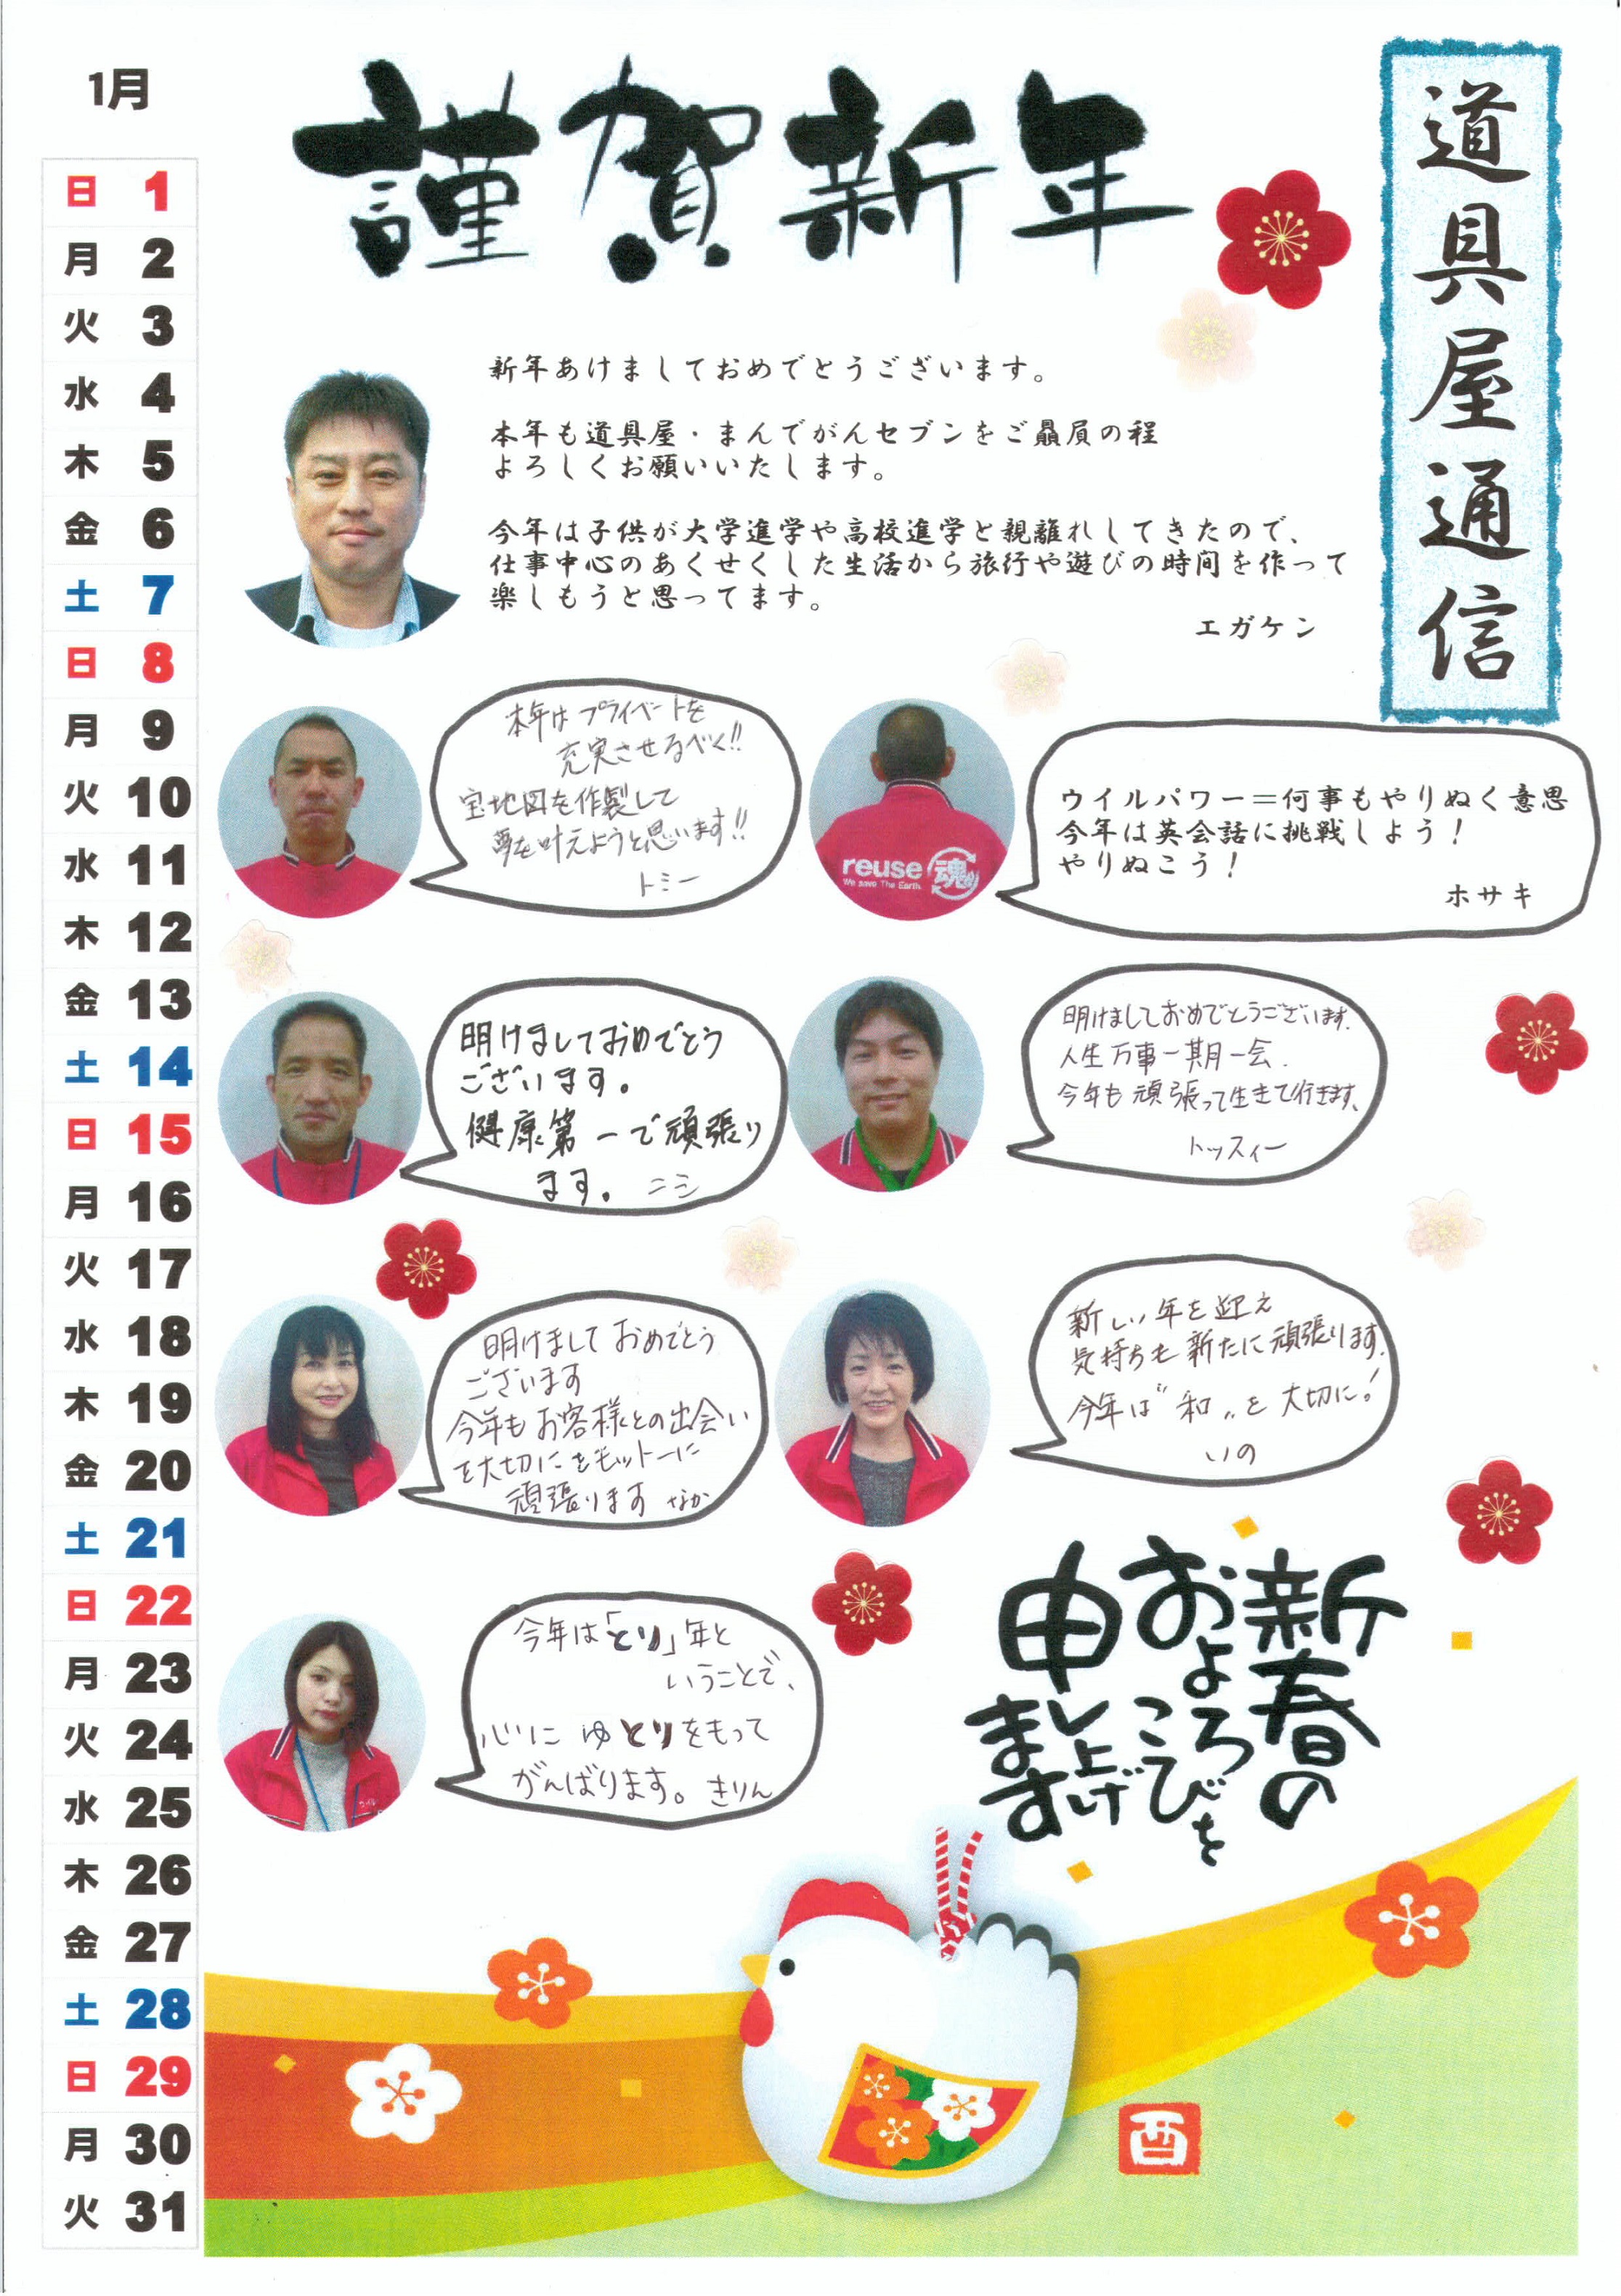 1月
日 1
月 2
火 3
水 4
木 5
金 6
土 7
日 8
月 9
火 10
水 11
木 12
金 13
土 14
日 15
月 16
火 17
水 18
木 19
金 20
土 21
日 22
月 23
火 24
水 25
木 26
金 27
土 28
日 29
月 30
火 31
謹賀新年
道具屋通信
新年あけましておめでとうございます。
本年も道具屋・まんでがんセブンをご贔屓の程
よろしくお願いいたします。
今年は子供が大学進学や高校進学と親離れしてきたので、
仕事中心のあくせくした生活から旅行や遊びの時間を作って
楽しもうと思ってます。
エガケン
本年はプライベートを
充実させるべく!!
宝地図を作製して
夢を叶えようと思います!!
トミー
reuse 魂
We save The Earth.
ウイルパワー＝何事もやりぬく意思
今年は英会話に挑戦しよう！
やりぬこう！
ホサキ
明けましておめでとう
ございます。
健康第一で頑張り
ます。 ニシ
明けましておめでとうございます。
人生万事一期一会.
今年も頑張って生きて行きます、
トッスィー
明けまして おめでとう
ございます
今年もお客様との出会い
を大切にをモットーに
頑張ります なか
新しい年を迎え
気持ちも新たに頑張ります.
今年は〝和〟を大切に!
いの
今年は「とり」年と
いうことで、
心にゆとりをもって
がんばります。 きりん
新春の
およろこびを
申し上げ
ます
酉